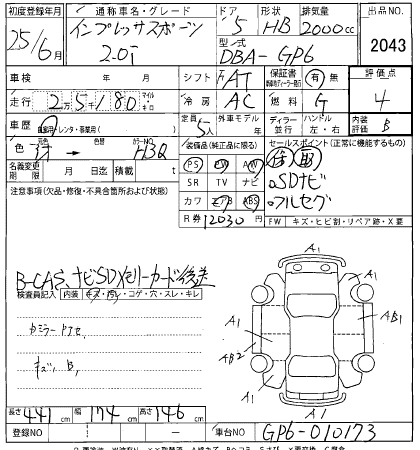 初度登録年月 通称車名・グレード ドア 形状 排気量 出品NO.
25/6月 インプレッサスポーツ 5 HB 2000cc
2.0i 型式 DBA-GP6 2043
車検 年 月 シフト FAT 保証書 有・無 評価点
走行 2万5千180 マイル キロ 冷房 AC 燃料 G 4
車歴 自家用・レンタ・事業用( ) 定員 5人 外車モデル 年 ディーラー 並行 ハンドル 左・右 内装評価 B
色 → 色替 カラーNO. H3Q 装備品(純正品に限る) セールスポイント(正常に機能するもの)
名義変更期限 月 日迄 積載量 t PS PW AW
SR TV ナビ SDナビ
注意事項(欠品・修復・不具合箇所および状態) カワ エアB ABS フルセグ
R券 12030円 FW キズ・ヒビ割・リペア跡・X要
B-CAS、ナビSDメモリーカード後送
検査員記入 内装 キズ・汚レ・コゲ・穴・スレ・キレ
カミラーアケセ
キズ B1
A1
A1
A1
A1
AB1
AB2
A1
A1
長さ 441cm 幅 174cm 高さ 146cm
登録NO ー 車台NO GP6-010173